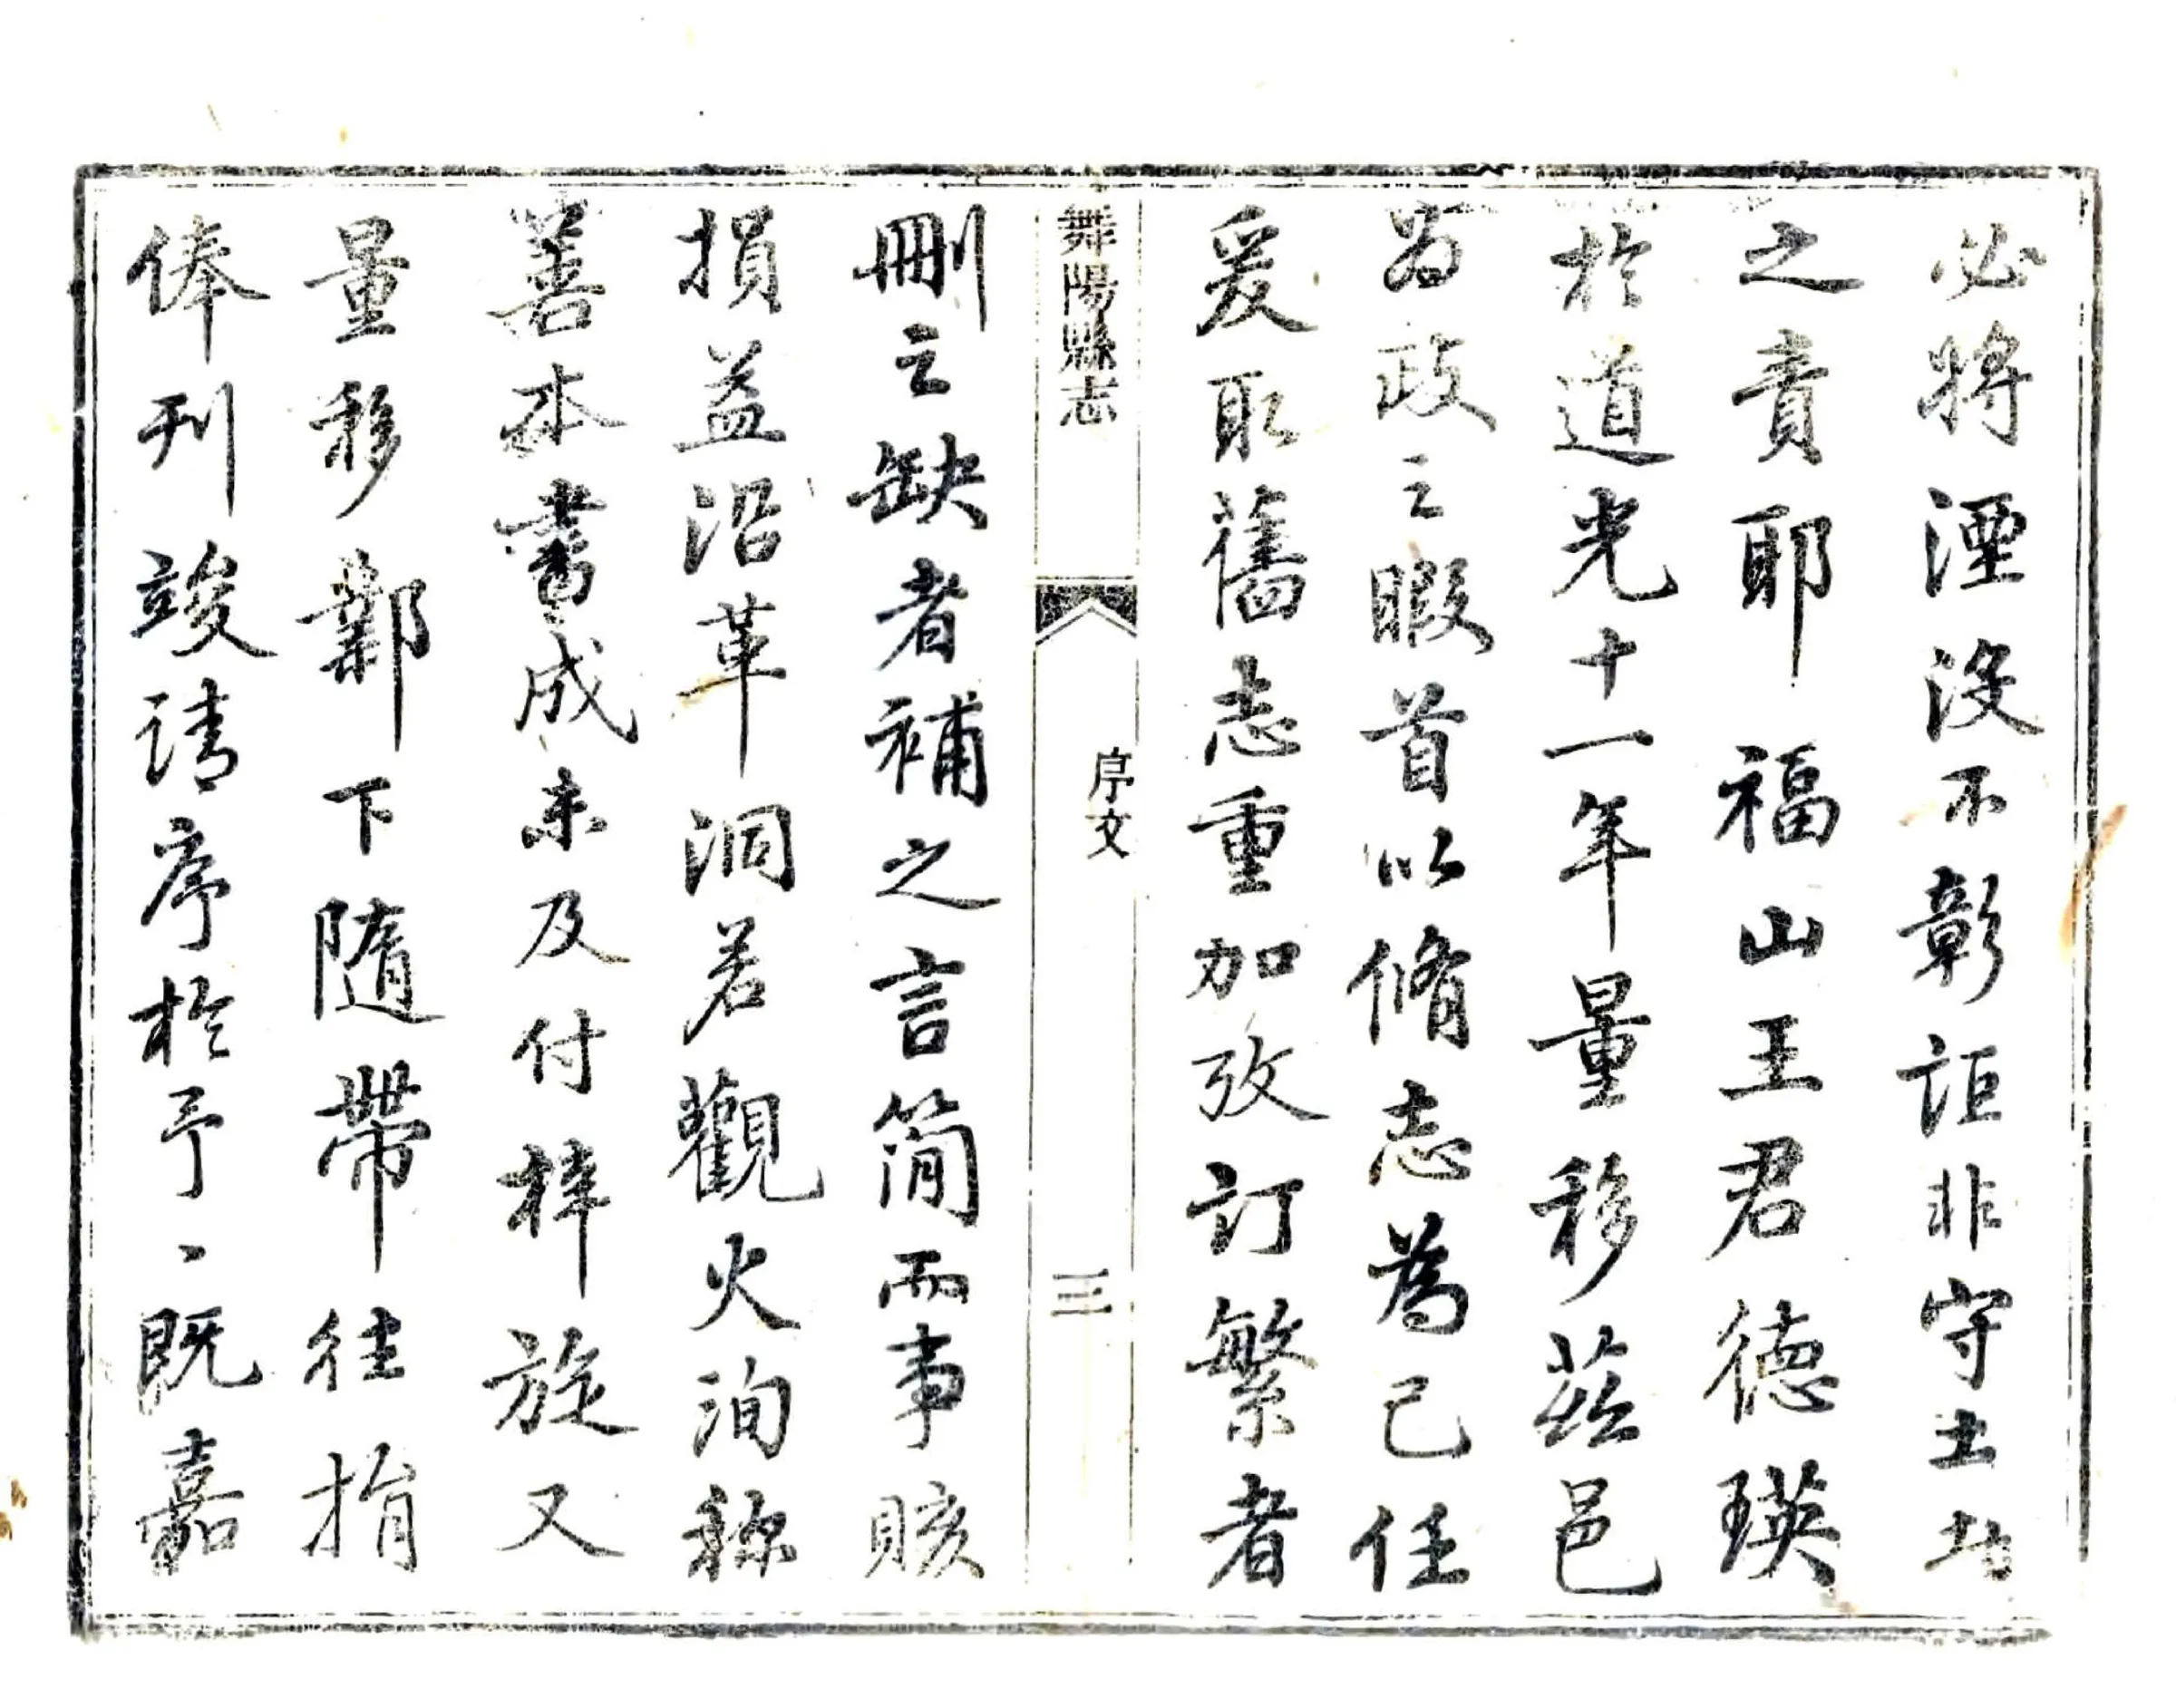 必將湮没不彰詎非守土者
之責耶福山王君德瑛
於道光十一年量移茲邑
為政之暇首以脩志為己任
爰取舊志重加攷訂繁者
舞陽縣志
序文
三
刪之缺者補之言簡而事賅
損益沿革洞若觀火洵称
善本書成未及付梓旋又
量移鄴下隨帶往捐
俸刊竣請序於予、既嘉